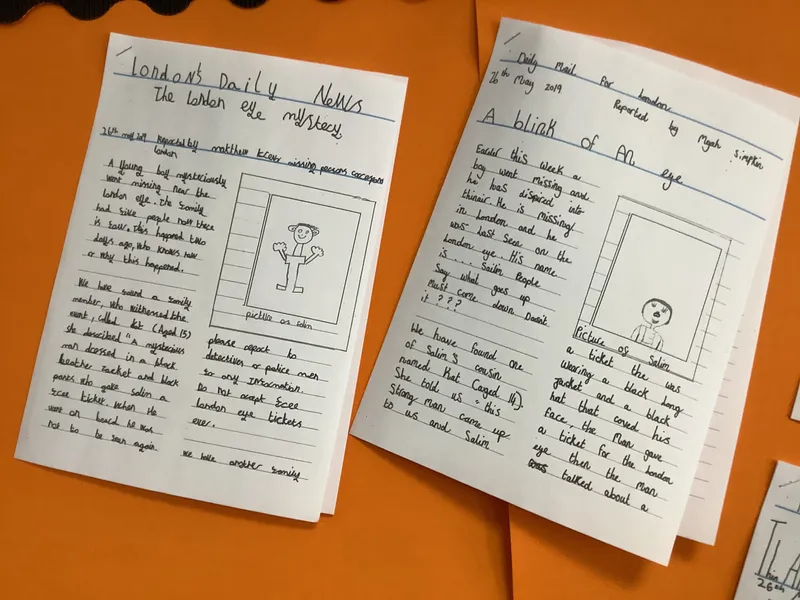 London's Daily News
The London eye mystery
26th may 2019 Reported by matthew missing persons
London
A Young boy mysteriously
went missing near the
London eye. The family
had five people now there
is four. This happened two
days ago, who knows how
or why this happened.
We have found a family
member, who witnessed the
event, called kat (Aged 15)
she described "A mysterious
man dressed in a black
leather Jacket and black
pants who gave salim a
free ticket. When he
went on board he was
not to be seen again.
picture of salim
please report to
detectives or police men
for any Information.
Do not accept free
london eye tickets
ever.
We have another family
Daily Mail for London
26th May 2019
Reported by Myah Simpkin
A blink of An eye
Earlier this week a
boy went missing and
he has dispired into
thinair. He is missing!
in London and he
was last seen on the
London eye. His name
is .... Salim. People
Say what goes up
Must come down Dosnt
it ???
We have found one
of Salim's cousin
named Kat (aged 14).
She told us "this
Strong man came up
to us and Salim
Picture of Salim
a ticket the was
waring a black long
jacket and a black
hat that coved his
face, the man gave
a ticket for the London
eye then the man
talked about a
26th